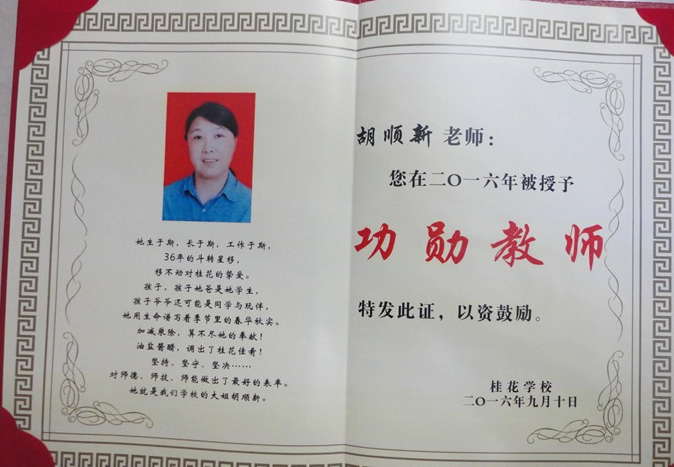 她生于斯，长于斯，工作于斯，
36年的斗转星移，
移不动对桂花的挚爱。
孩子，孩子她爸是她学生，
孩子爷爷还可能是同学与玩伴，
她用生命谱写着季节里的春华秋实。
加减乘除，算不尽她的奉献！
油盐酱醋，调出了桂花佳肴！
坚持、坚守、坚决……
对师德、师技、师能做出了最好的表率。
她就是我们学校的大姐胡顺新。
胡顺新老师：
您在二〇一六年被授予
功勋教师
特发此证，以资鼓励。
桂花学校
二〇一六年九月十日